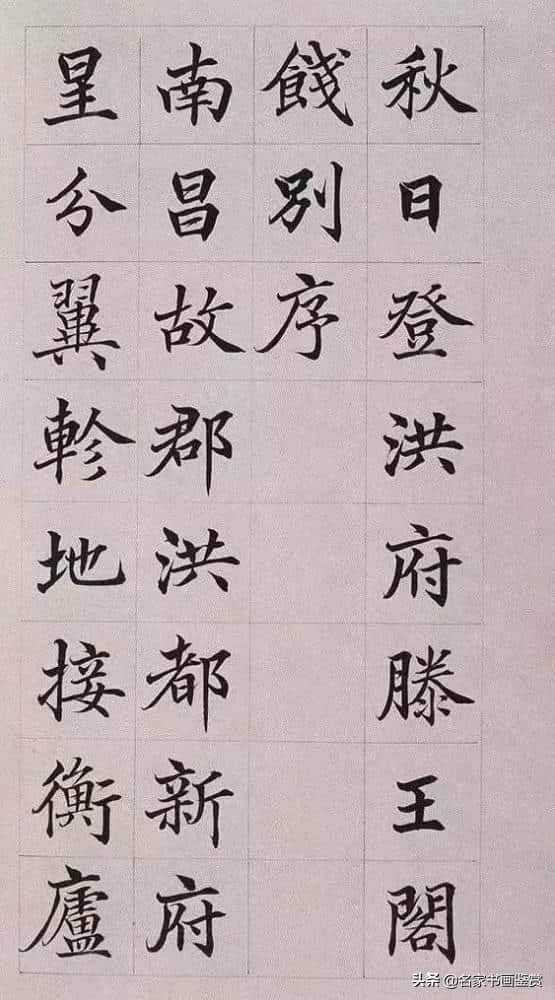 秋日登洪府滕王閣
餞別序
南昌故郡洪都新府
星分翼軫地接衡廬
头条 @名家书画鉴赏